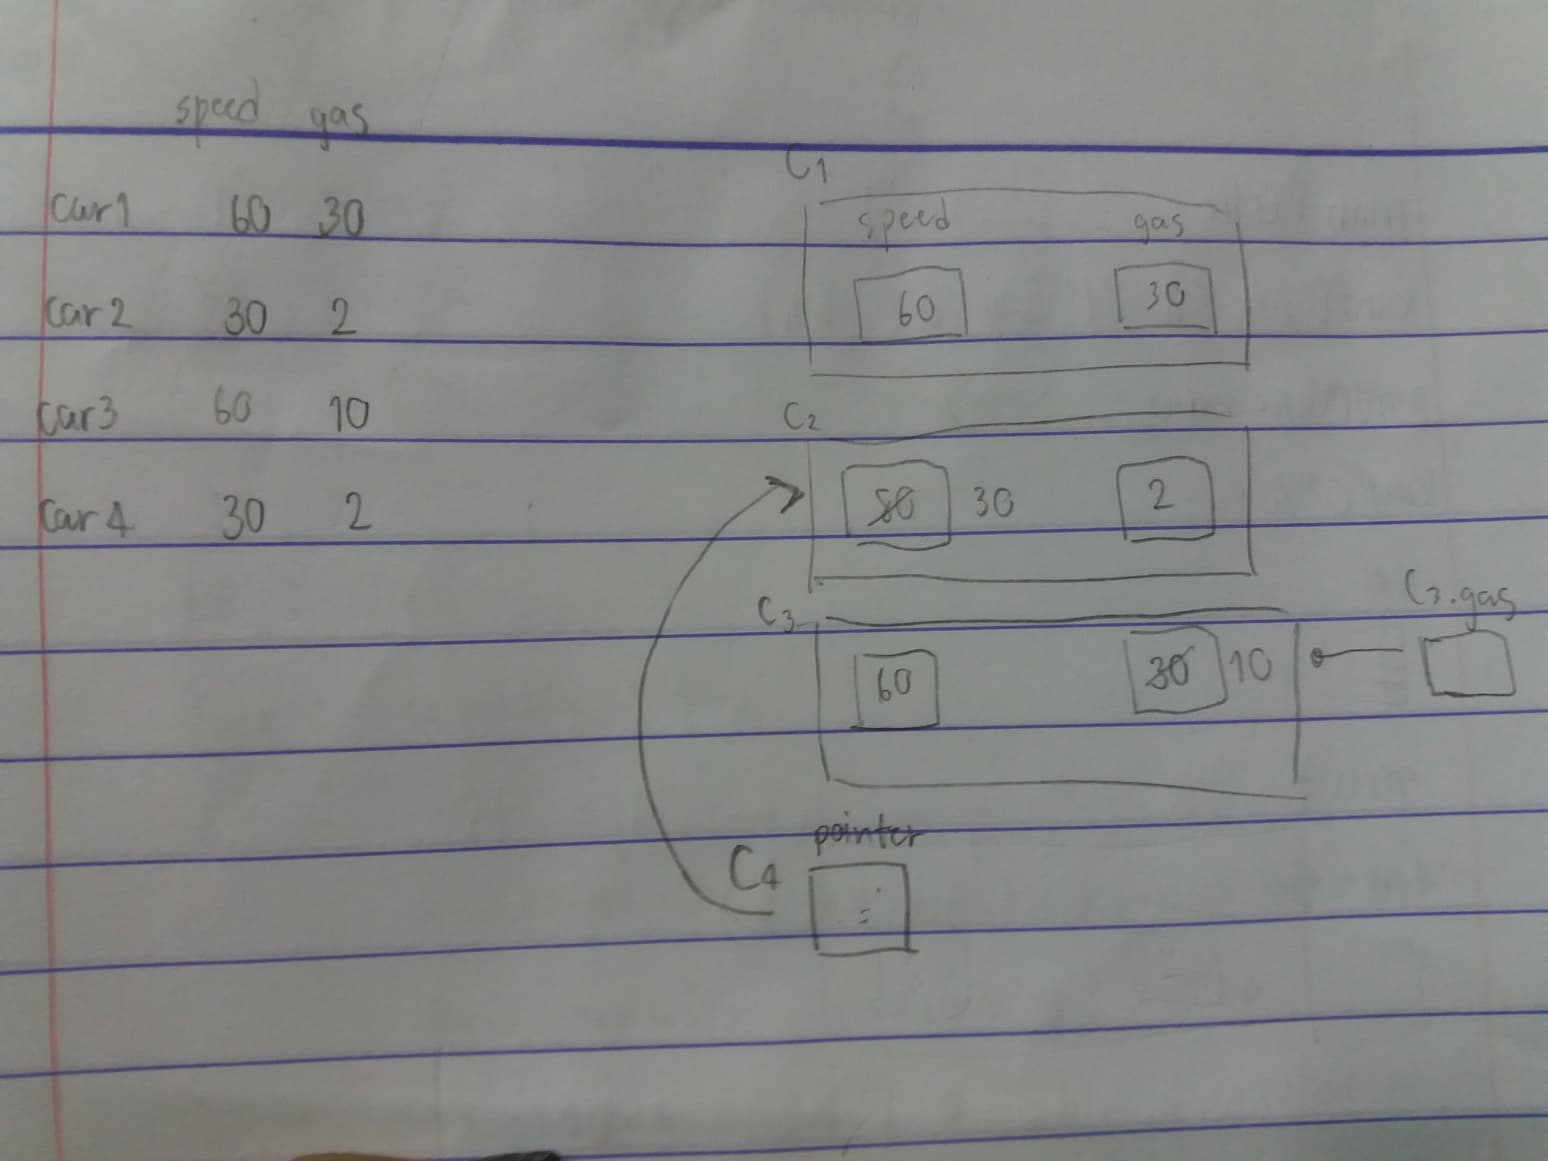 speed gas
car1 60 30
car2 30 2
car3 60 10
car4 30 2
C1
speed gas
60 30
C2
80 30 2
C3
60 30 10
C3.gas
pointer
C4